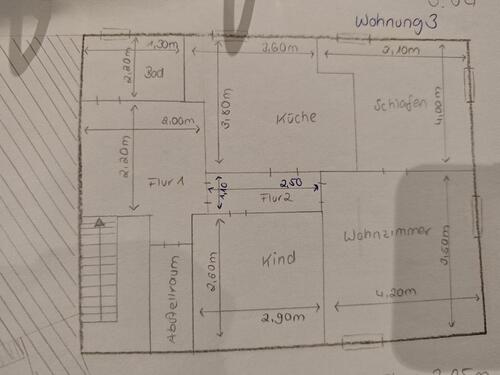 Wohnung 3
1,30m
3,60m
3,10m
2,20m
Bad
Küche
Schlafen
3,80m
4,00m
2,00m
2,20m
Flur 1
1,10
2,50
Flur 2
Wohnzimmer
3,60m
Kind
2,60m
Abstellraum
2,90m
4,20m